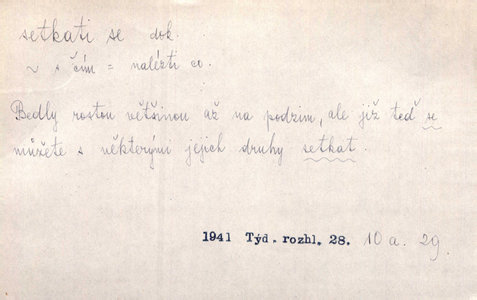 setkati se dok.
~ s čím = nalézti co.
Bedly rostou většinou až na podzim, ale již teď se
můžete s některými jejich druhy setkat.
1941 Týd. rozhl. 28. 10 a. 29.